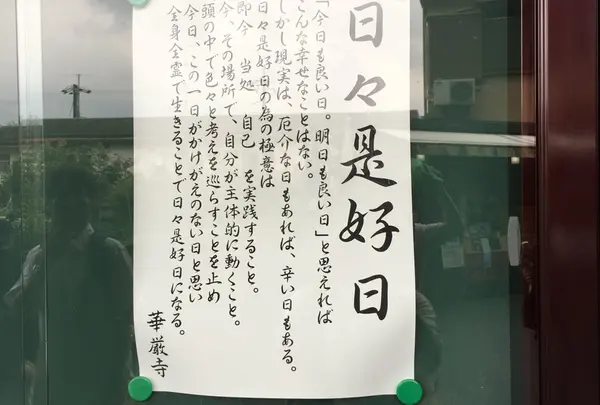 日々是好日
「今日も良い日。明日も良い日」と思えれば
こんな幸せなことはない。
しかし現実は、厄介な日もあれば、辛い日もある。
日々是好日の為の極意は
即今 当処 自己 を実践すること。
今、その場所で、自分が主体的に動くこと。
頭の中で色々と考えを巡らすことを止め
今日、この一日がかけがえのない日と思い
全身全霊で生きることで日々是好日になる。
華厳寺